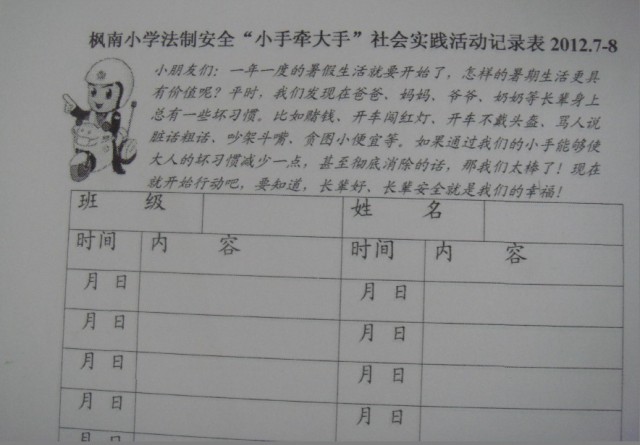 枫南小学法制安全“小手牵大手”社会实践活动记录表2012.7-8
小朋友们：一年一度的暑假生活就要开始了，怎样的暑期生活更具
有价值呢？平时，我们发现在爸爸、妈妈、爷爷、奶奶等长辈身上
总有一些坏习惯。比如赌钱、开车闯红灯、开车不戴头盔、骂人说
脏话粗话、吵架斗嘴、贪图小便宜等。如果通过我们的小手能够使
大人的坏习惯减少一点，甚至彻底消除的话，那我们太棒了！现在
就开始行动吧，要知道，长辈好、长辈安全就是我们的幸福！
班 级 姓 名
时间 内 容 时间 内 容
月 日 月 日
月 日 月 日
月 日 月 日
月 日 月 日
月 日